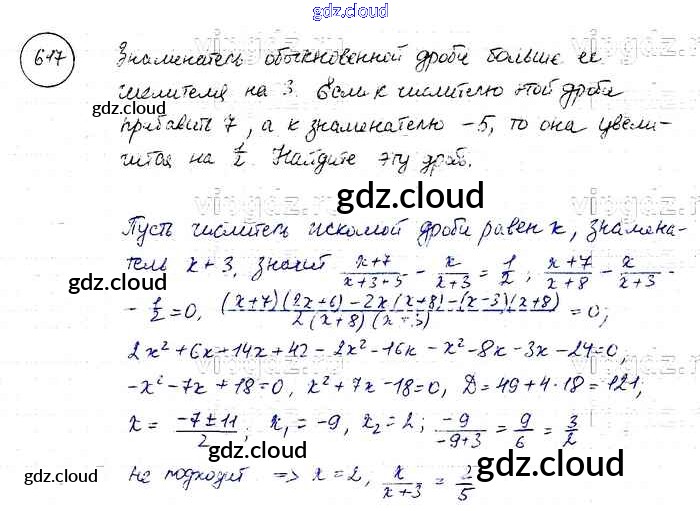 gdz.cloud
617
Знаменатель обыкновенной дроби больше ее
числителя на 3. Если к числителю этой дроби
gdz.cloud
прибавить 7, а к знаменателю – 5, то она увели-
чится на 1/2. Найдите эту дробь.
gdz.cloud
gdz.cloud
Пусть числитель искомой дроби равен x, знамена-
тель x+3, значит (x+7)/(x+3+5) - x/(x+3) = 1/2; (x+7)/(x+8) - x/(x+3) -
gdz.cloud
gdz.cloud
- 1/2 = 0, ((x+7)(2x+6)-2x(x+8)-(x-3)(x+8))/(2(x+8)(x+3)) = 0;
2x²+6x+14x+42-2x²-16x-x²-8x-3x-24=0,
-x²-7x+18=0, x²+7x-18=0, D=49+4·18=121;
x = (-7±11)/2; x₁=-9, x₂=2; -9/(-9+3) = 9/6 = 3/2
gdz.cloud
gdz.cloud
gdz.cloud
не подходит => x=2, x/(x+3) = 2/5